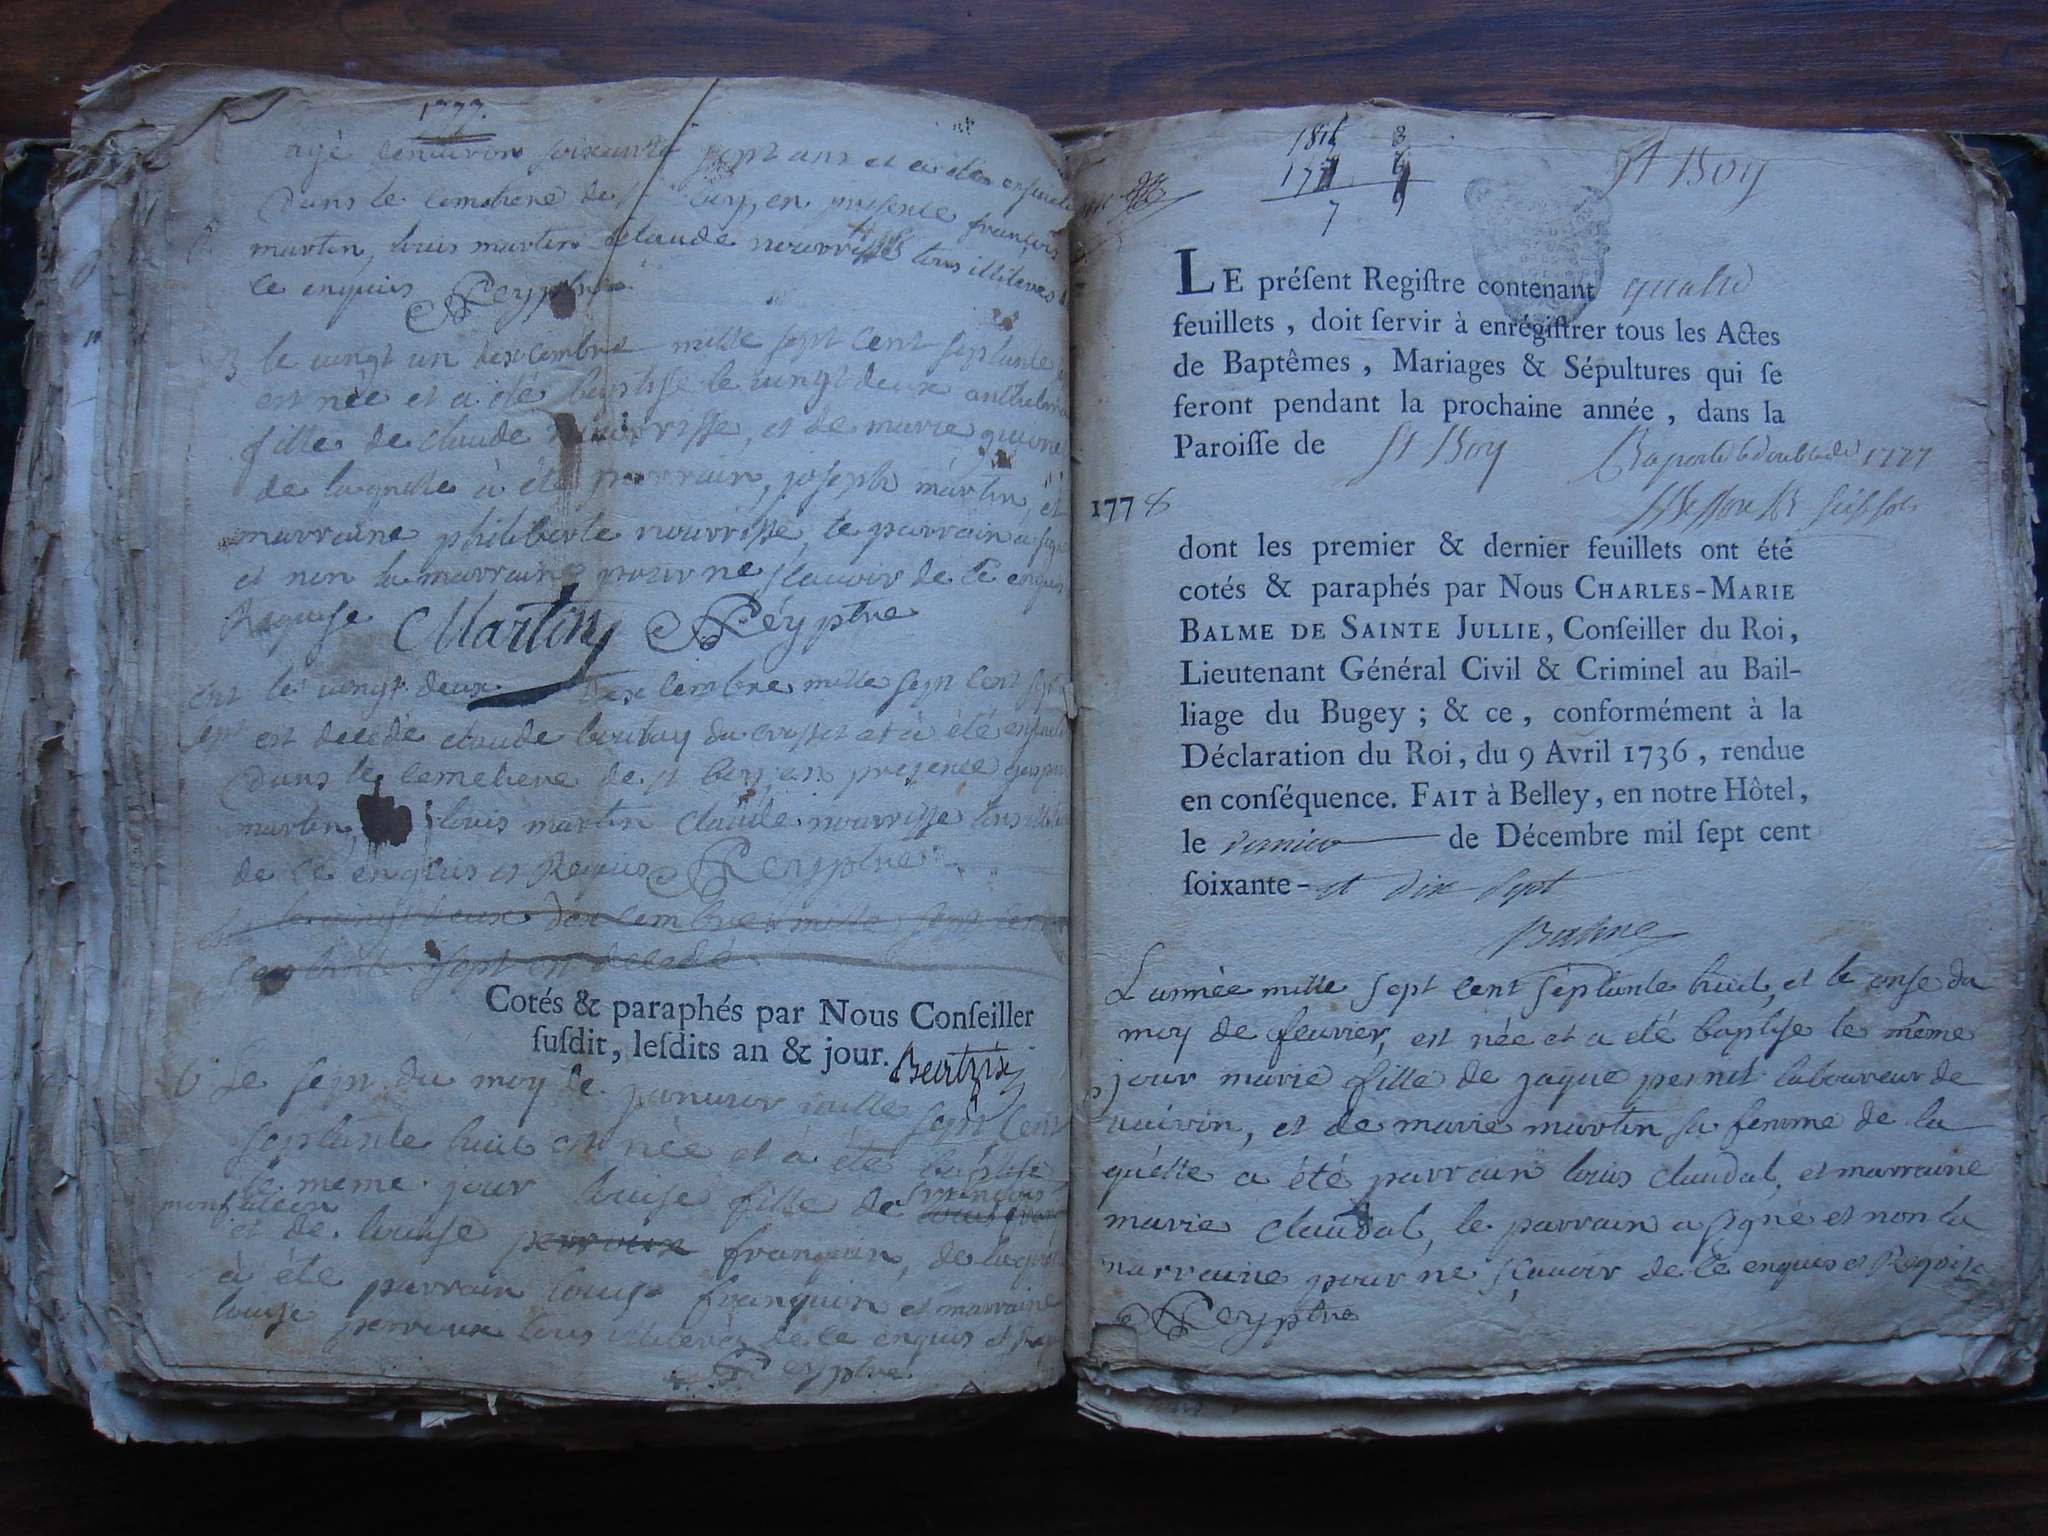 1777.
agé denviron soixante sept ans et a été ensevelit
Dans le cemetiere de en presence françois
martin, louis martin claude nourrisse tous illiteres
ce enquis Rey ptre
le vingt un dexcembre mille sept cent septante
est née et a été baptise le vingt deux
fille de claude nourrisse, et de marie
de laquelle a été parrain, joseph martin, et
marraine philiberte nourrisse, le parrain a signé
et non la marraine pour ne sçavoir de ce enquis
Requise Martin Rey ptre
le vingt deux dexcembre mille sept cent
sept est decedé claude et a été ensevelit
Dans le cemetiere de st boy, en presence
martin, louis martin claude nourrisse tous
de ce enquis et Requis Rey ptre
le vingt deux dexcembre mille sept cent
septante sept est decedé
Cotés & paraphés par Nous Conſeiller
ſuſdit, leſdits an & jour.
Le sept du moy de janvier mille sept cent
septante huit est née et a été baptise
le meme jour louise fille de françois
monfalcon et de louise perroux franquin, de laquelle
à été parrain louis franquin et marraine
louise perroux tous illiterés de ce enquis et
Rey ptre
St Boy
LE préſent Regiſtre contenant quatre
feuillets, doit ſervir à enrégiſtrer tous les Actes
de Baptêmes, Mariages & Sépultures qui ſe
feront pendant la prochaine année, dans la
Paroiſſe de St Boy
1777
1778
dont les premier & dernier feuillets ont été
cotés & paraphés par Nous CHARLES-MARIE
BALME DE SAINTE JULLIE, Conſeiller du Roi,
Lieutenant Général Civil & Criminel au Bail-
liage du Bugey ; & ce, conformément à la
Déclaration du Roi, du 9 Avril 1736, rendue
en conſéquence. FAIT à Belley, en notre Hôtel,
le dernier de Décembre mil ſept cent
ſoixante- et dix sept
Balme
L'année mille sept cent septante huit, et le onse du
moy de feuvrier, est née et a été baptise le même
jour marie fille de jaque pernet laboureur de
et de marie martin sa femme de la
quelle a été parrain louis claudal, et marraine
marie claudal, le parrain a signé et non la
marraine pour ne sçavoir de ce enquis et Requise
Rey ptre